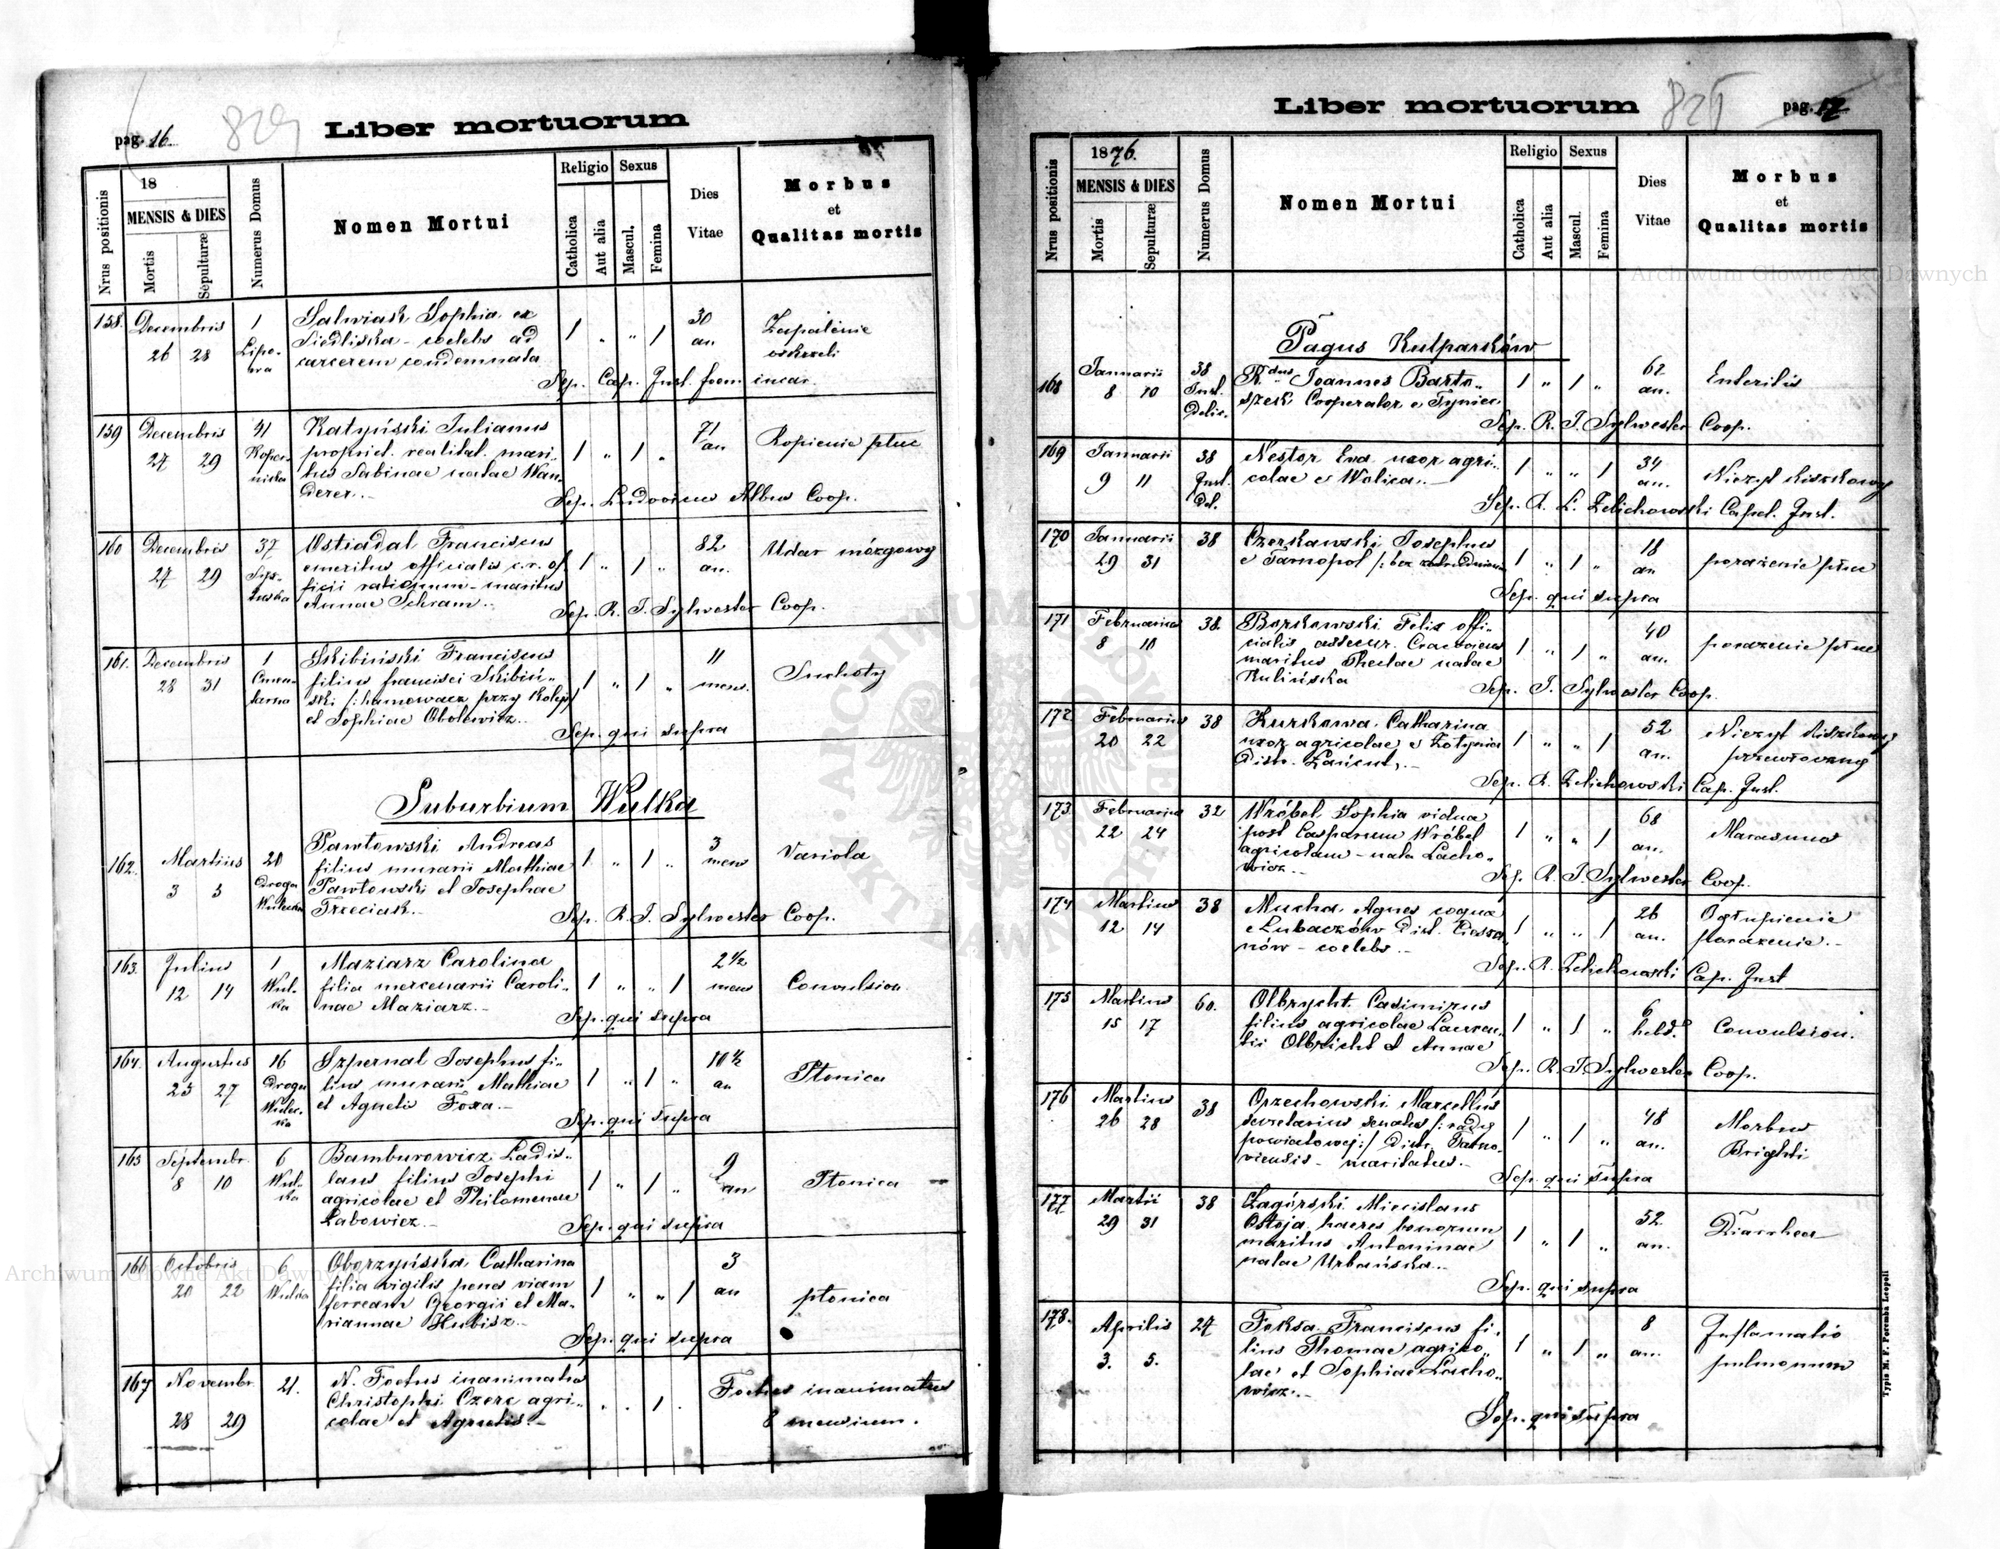 829
Liber mortuorum
pag. 16.
Nrus positionis
18
MENSIS & DIES
Mortis
Sepulturæ
Numerus Domus
Nomen Mortui
Religio
Catholica
Aut alia
Sexus
Mascul.
Femina
Dies
Vitae
Morbus
et
Qualitas mortis
158. Decembris 1 Salwiak Sophia ex 1 „ „ 1 30 Zapalenie
26 28 Siedliska – coelebs ad an
carcerem condemnata
Sep. Cap. Inst. foem incar.
159 Decembris 41 Katyński Julianus 1 „ 1 „ 71 Ropienie płuc
27 29 propriet. realitat. mari- an
tus Sabinae natae Wan-
derer.–
Sep. Ludovicus Albus Coop.
160 Decembris 37 Ostiadal Franciscus 1 „ 1 „ 82 Udar mózgowy
27 29 emeritus officialis c.r. of- an.
ficii rationum – maritus
Annae Schram.–
Sep. R. T. Sylwester Coop.
161. Decembris 1 Skibiński Franciscus 1 „ 1 „ 11 Suchoty
28 31 filius francisci Skibiń- mens.
ski /: hamowacz przy kolei /
et Sophiae Obolewicz.–
Sep. qui supra
Suburbium Wulka
162. Martius 20 Pawłowski Andreas 1 „ 1 „ 3 Variola
3 5 Droga filius murarii Mathiae mens
Wulecka Pawłowski et Josephae
Trzeciak.–
Sep. R. T. Sylwester Coop.
163. Julius 1 Maziarz Carolina 1 „ „ 1 2 1/2 Convulsion.
12 14 Wul- filia mercenarii Caroli- mens
ka nae Maziarz.–
Sep. qui supra
164. Augustus 16 Szpernal Josephus fi- 1 „ 1 „ 10 1/2 Płonica
25 27 Droga lius murarii Mathiae an
Wulec- et Agnetis Foxa.–
ka
Sep. qui supra
165 Septembr. 6 Bamburowicz Ladis- 1 „ 1 „ 9 Płonica
8 10 Wul- laus filius Josephi an
ka agricolae et Philomenae
Labowicz.–
Sep. qui supra
166 Octobris 6 Oborzyńska Catharina 1 „ „ 1 3 płonica
20 22 Wulka filia vigilis penes viam an
ferream Georgii et Ma-
riannae Hubisz.–
Sep. qui supra
167 Novembr. 21. N. Foetus inanimatus „ „ 1 . Foetus inanimatus
28 29 Christophi Czerc agri- 8 mensium.
colae et Agnetis.–
Liber mortuorum
pag. 17
Nrus positionis
1876.
MENSIS & DIES
Mortis
Sepulturæ
Numerus Domus
Nomen Mortui
Religio
Catholica
Aut alia
Sexus
Mascul.
Femina
Dies
Vitae
Morbus
et
Qualitas mortis
Pagus Kulparków
168 Januarii 38 Rdus Joannes Barto- 1 „ 1 „ 62 Enteritis
8 10 Inst. szek Cooperator e Tyniec an.
Sep. R. T. Sylwester Coop.
169 Januarii 38 Nestor Eva uxor agri- 1 „ „ 1 34 Nieżyt kiszkowy
9 11 Inst. colae e Wolica.– an.
Del.
Sep. R. L. Zelichowski Capel. Inst.
170 Januarii 38 Czerkawski Josephus 1 „ 1 „ 18 porażenie płuc
29 31 e Tarnopol /: bez zatrudnienia an
Sep. qui supra
171 Februarius 38. Borkowski Felix offi- 1 „ 1 „ 40 porażenie płuc
8 10 cialis assecur. Cracoviens an.
maritus Theclae natae
Kulińska
Sep. T. Sylwester Coop.
172. Februarius 38 Kurkowa Catharina 1 „ „ 1 52 Nieżyt kiszkowy
20 22 uxor agricolae e Żołynia an. przewłoczny
Distr. Łańcut.–
Sep. R. Zelichowski Cap. Inst.
173. Februarius 32 Wróbel Sophia vidua 1 „ „ 1 68 Marasmus
22 24 post Casparum Wróbel an.
agricolam – nata Lacho-
wicz.–
Sep. R. T. Sylwester Coop.
174 Martius 38 Mucha Agnes coqua 1 „ „ 1 26 Ogłupienie
12 14 e Lubaczów Dist. Ciesza- an. porażenie.–
nów – coelebs.–
Sep. R. Zelichowski Cap. Inst
175 Martius 60. Olbrycht Casimirus 1 „ 1 „ 6 Convulsion.
15 17 filius agricolae Lauren- hebd.
tii Olbricht et Annae
Sep. R. T. Sylwester Coop.
176 Martius 38 Orzechowski Marcellus 1 „ 1 „ 48 Morbus
26 28 secretarius senatus /: rady an. Brighti
powiatowej :/ Distr. Tarno-
viensis – maritatus.–
Sep. qui supra
177 Martii 38 Zagórski Miecislaus 1 „ 1 „ 52. Diarrhea
29 31 Ostoja haeres bonorum an.
maritus Antoninae
natae Urbańska.–
Sep. qui supra
178. Aprilis 24 Foksa Franciscus fi- 1 „ 1 „ 8 Inflamatio
3. 5. lius Thomae agrico- an. pulmonum
lae et Sophiae Lacho-
wicz.–
Sep. qui supra
Typis M. F. Poremba Leopoli
Archiwum Główne Akt Dawnych
Archiwum Główne Akt Dawnych
ARCHIWUM GŁÓWNE AKT DAWNYCH